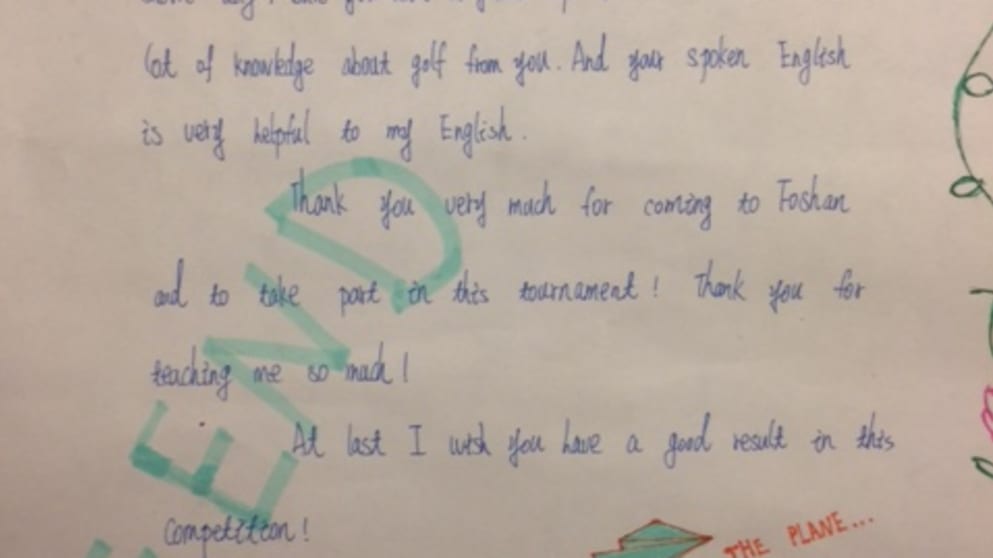 lot of knowledge about golf from you. And your spoken English
is very helpful to my English.
Thank you very much for coming to Foshan
and to take part in this tournament! Thank you for
teaching me so much!
At last I wish you have a good result in this
Competition!
END
THE PLANE...